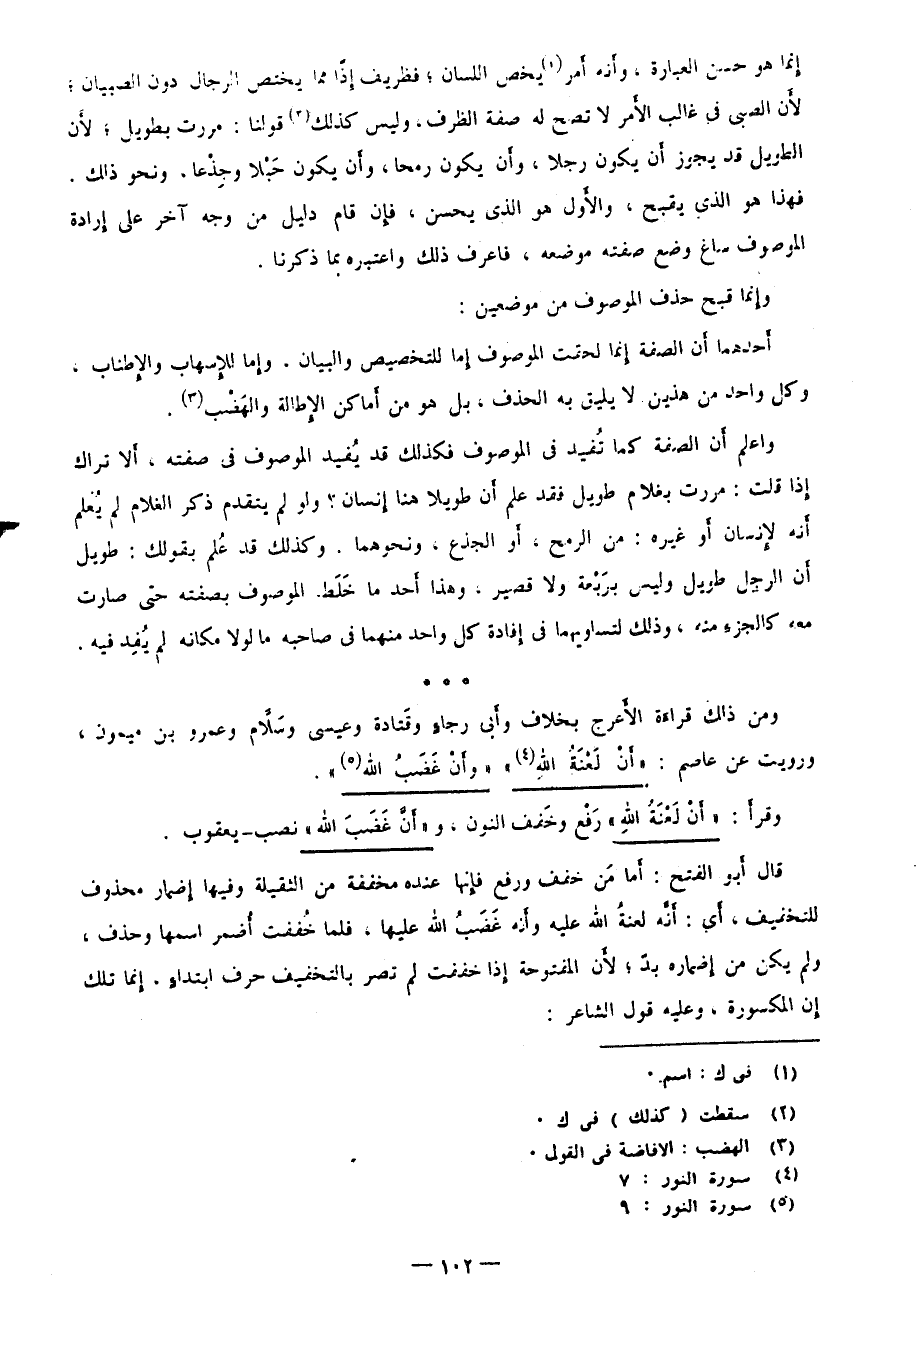 إنما هو حسن العبارة ، وأنه أمر(١) يخص اللسان ؛ فظريف إذًا مما يختص الرجال دون الصبيان ؛
لأن الصبى فى غالب الأمر لا تصح له صفة الظرف ، وليس كذلك(٢) قولنا : مررت بطويل ؛ لأن
الطويل قد يجوز أن يكون رجلا ، وأن يكون رمحا ، وأن يكون حَبْلا وجِذْعا ، ونحو ذلك .
فهذا هو الذي يقبح ، والأَول هو الذى يحسن ، فإن قام دليل من وجه آخر على إرادة
الموصوف ساغ وضع صفته موضعه ، فاعرف ذلك واعتبره بما ذكرنا .
وإنما قبح حذف الموصوف من موضعين :
أَحدهما أن الصفة إنما لحقت الموصوف إما للتخصيص والبيان . وإما للإسهاب والإطناب ،
وكل واحد من هذين لا يليق به الحذف ، بل هو من أَماكن الإطالة والهَضْب(٣) .
واعلم أَن الصفة كما تُفيد فى الموصوف فكذلك قد يُفيد الموصوف فى صفته ، أَلا تراك
إذا قلت : مررت بغلام طويل فقد علم أن طويلا هنا إنسان ؟ ولو لم يتقدم ذكر الغلام لم يُعْلم
أنه لإنسان أَو غيره : من الرمح ، أو الجذع ، ونحوهما . وكذلك قد عُلم بقولك : طويل
أن الرجل طويل وليس برَبْعة ولا قصير ، وهذا أحد ما خَلَط الموصوف بصفته حتى صارت
معه كالجزء منه ، وذلك لتساويهما فى إفادة كل واحد منهما فى صاحبه ما لولا مكانه لم يُفِد فيه .
• • •
ومن ذلك قراءة الأَعرج بخلاف وأَبى رجاء وقَتادة وعيسى وسَلَّام وعمرو بن ميمون ،
ورويت عن عاصم : « أَنْ لَعْنَةُ اللهِ(٤) » « وأَنْ غَضَبُ الله(٥) » .
وقرأَ : « أَنْ لَعْنَةُ اللهِ » رَفْع وخفف النون ، و « أَنَّ غَضَبَ الله » نصب-يعقوب .
قال أَبو الفتح : أما مَن خفف ورفع فإنها عنده مخففة من الثقيلة وفيها إضمار محذوف
للتخفيف ، أَي : أَنَّه لعنةُ الله عليه وأنه غَضَبُ الله عليها ، فلما خُففت أُضمر اسمها وحذف ،
ولم يكن من إضماره بدّ ؛ لأن المفتوحة إذا خففت لم تصر بالتخفيف حرف ابتداء . إنما تلك
إن المكسورة ، وعليه قول الشاعر :
(١) فى ك : اسم .
(٢) سقطت ( كذلك ) فى ك .
(٣) الهضب : الافاضة فى القول .
(٤) سورة النور : ٧
(٥) سورة النور : ٩
— ١٠٢ —